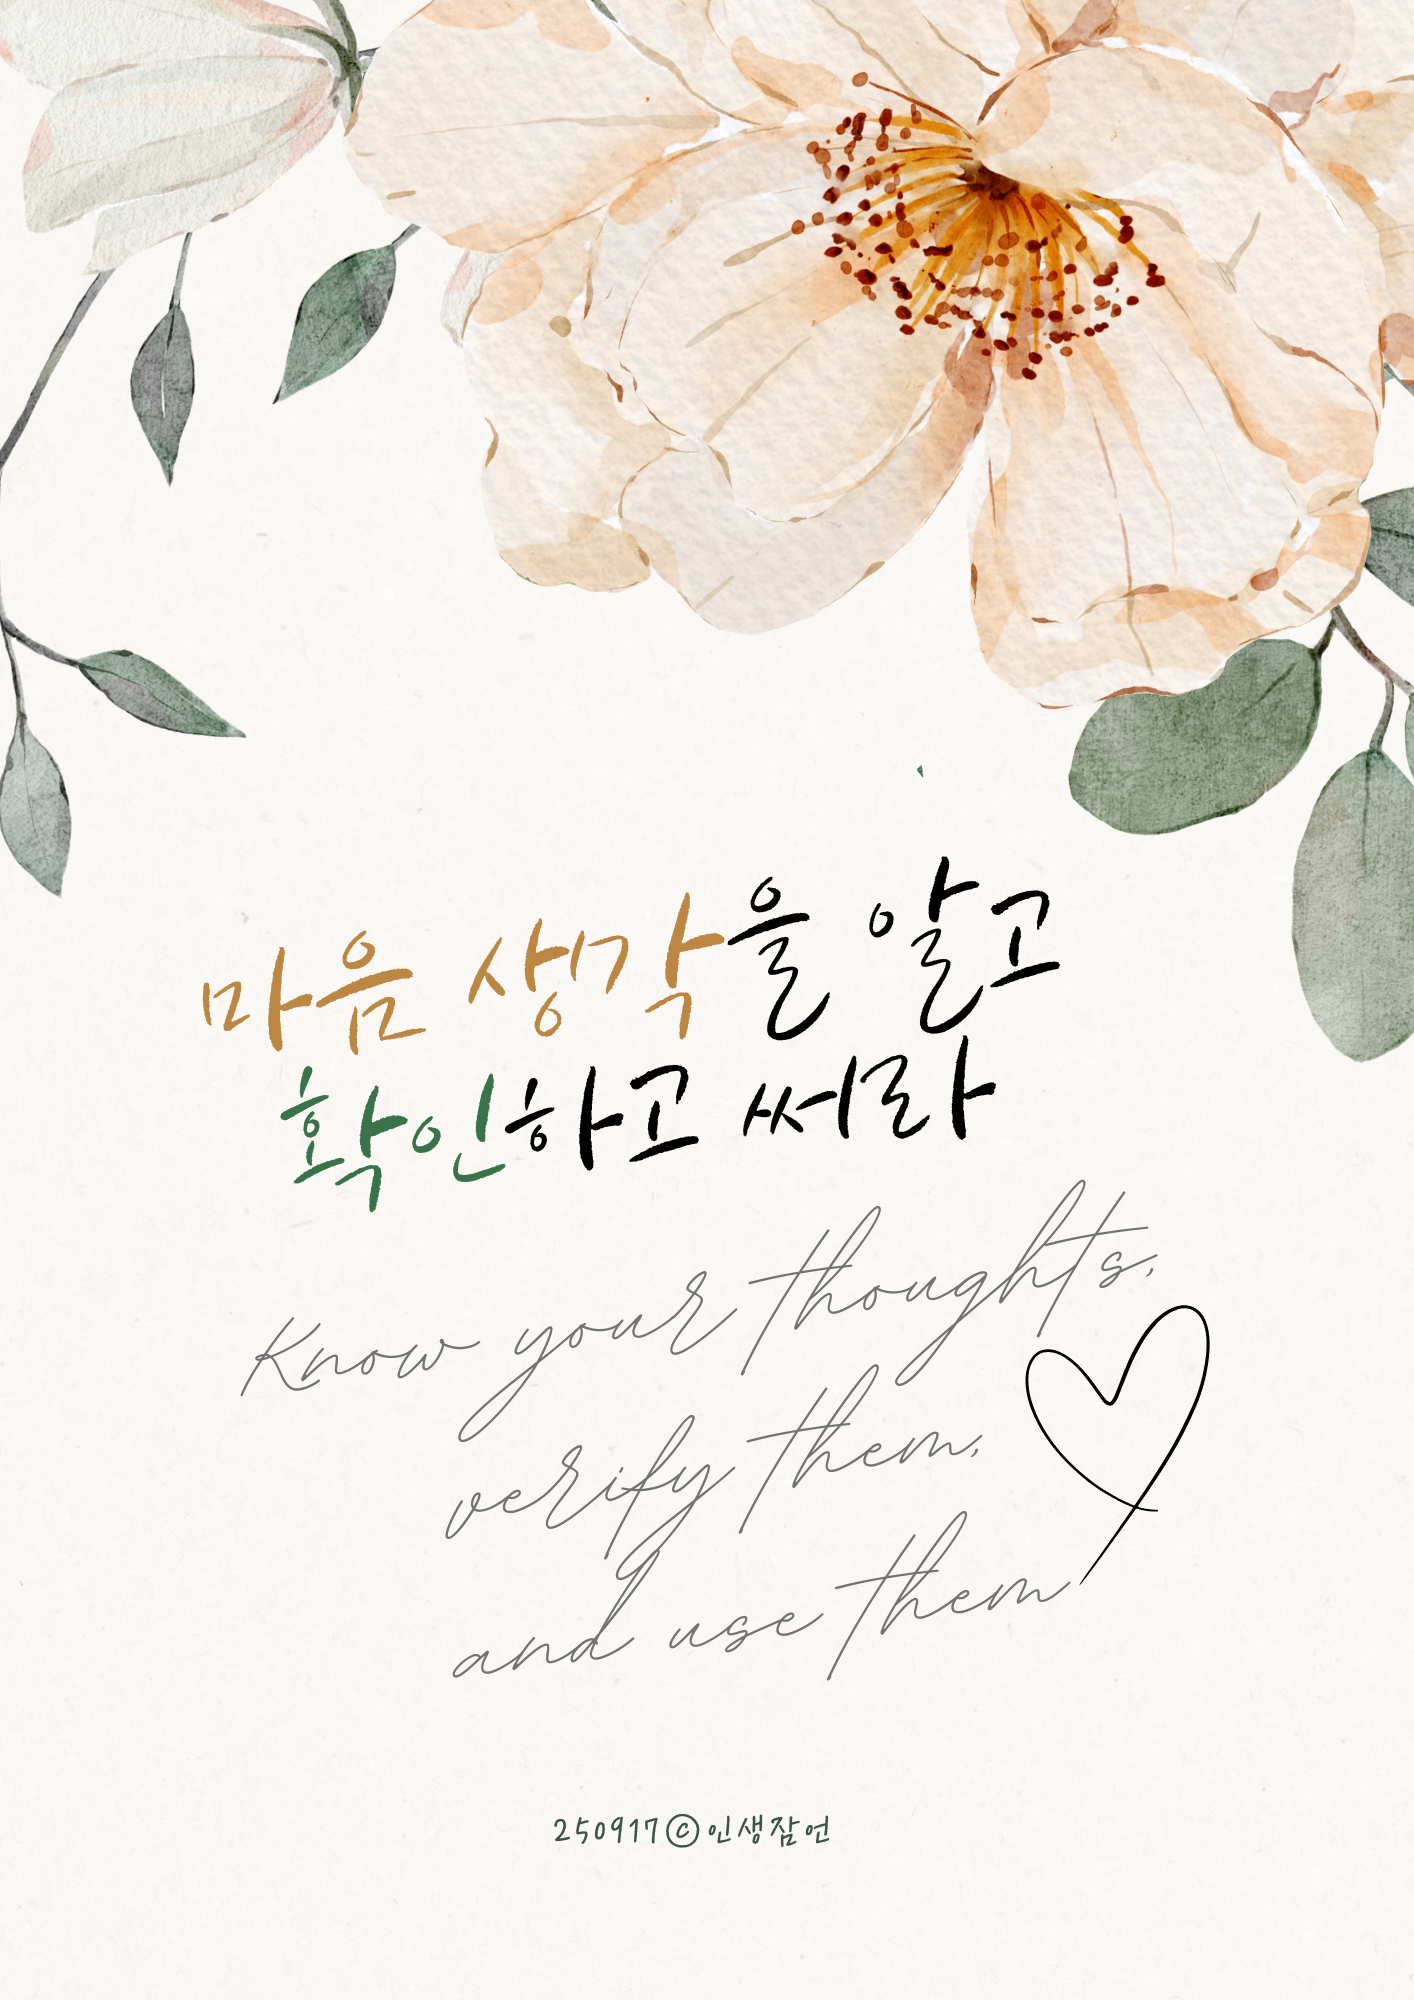 마음 생각을 알고
확인하고 써라
Know your thoughts,
verify them,
and use them
250917ⓒ인생잠언